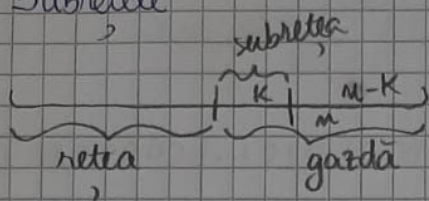 Subrețele
subrețea
K m-K
m
rețea gazdă